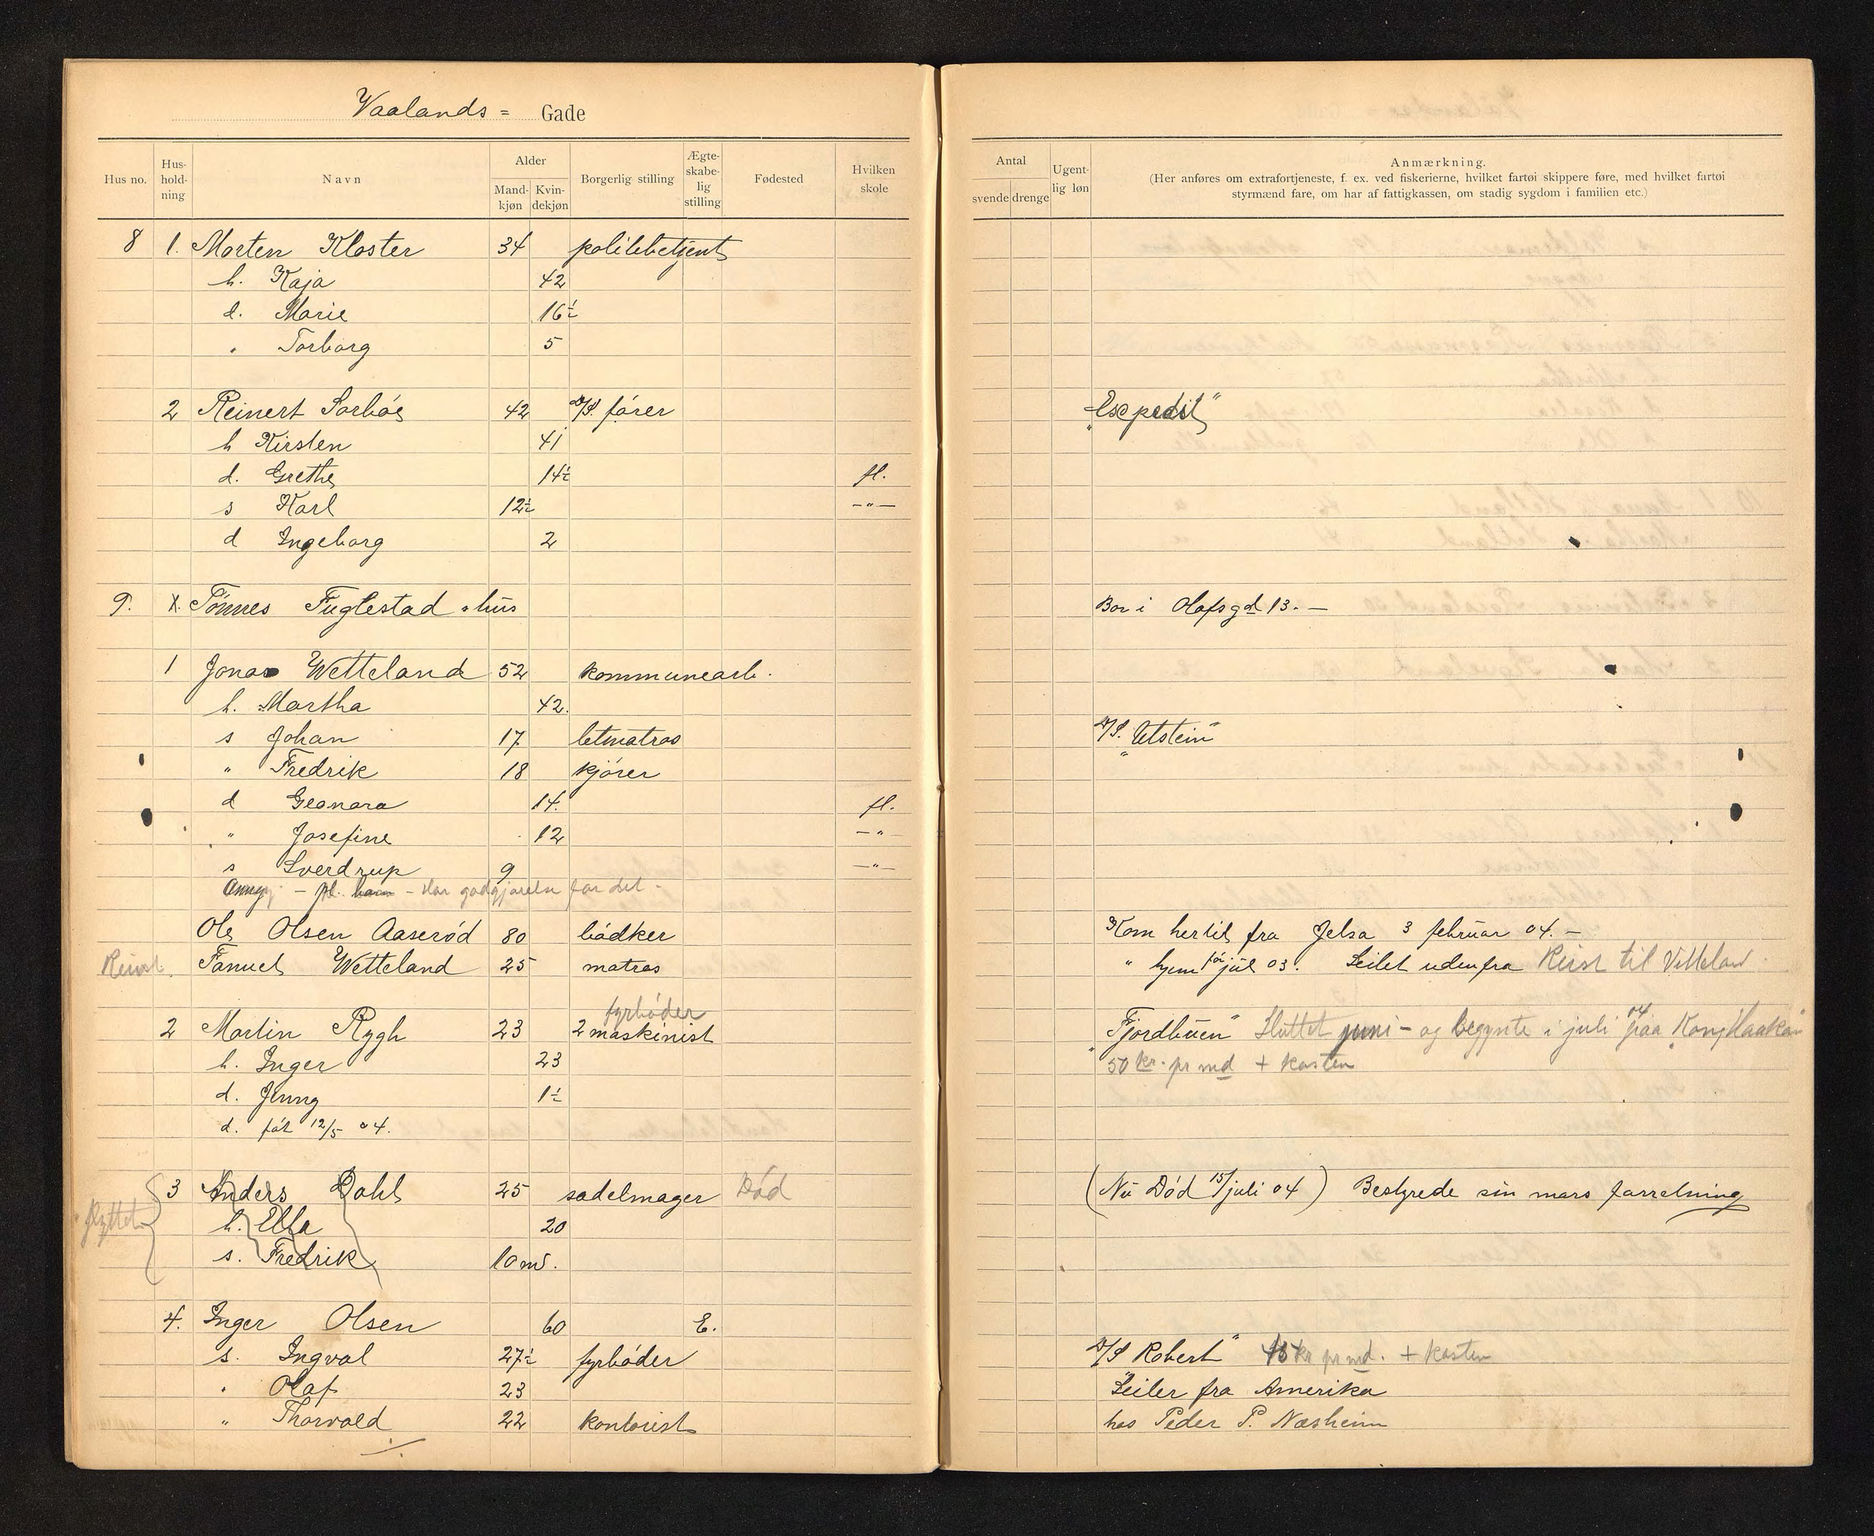 Vaalands= Gade
Hus no. Hus-hold-ning Navn Alder Mand-kjøn Kvin-dekjøn Borgerlig stilling Ægte-skabe-lig stilling Fødested Hvilken skole
Antal svende drenge Ugent-lig løn Anmærkning.
(Her anføres om extrafortjeneste, f. ex. ved fiskerierne, hvilket fartøi skippere føre, med hvilket fartøi
styrmænd fare, om har af fattigkassen, om stadig sygdom i familien etc.)
8 1. Morten Kloster 34 politibetjent
h. Kaja 42
d. Marie 16½
" Torborg 5
2 Reinert Sorbøe 42 D/S. fører "Expedit"
h Kirsten 41
d. Grethe 14½ fl.
s Karl 12½ —"—
d Ingeborg 2
9. X. Tönnes Fuglestad's hus Bor i Olafsgd 13. —
1 Jonas Wetteland 52 kommunearb.
h. Martha 42.
s Johan 17 letmatros D/S. "Utstein"
" Fredrik 18 kjører
d Geonora 14. fl.
" Josefine 12 —"—
s Sverdrup 9 —"—
Anny - pl. barn - Har godgjørelse for det -
Ole Olsen Aaserød 80 bødker Kom hertil fra Jelsa 3 februar 04. —
Reist. Fanuel Wetteland 25 matros " hjem før jul 03. Seilet udenfra Reist til Vetteland
fyrbøder
2 Martin Rygh 23 2 maskinist "Fjordbuen" Sluttet juni - og begynte i juli 04 paa "Kong Haakon"
h. Inger 23 50 kr. pr md + kosten
d. Jenny 1½
d. føt 12/5 04.
flyttet 3 Anders Dahl 25 sadelmager Død (Nu Død 15/juli 04) Bestyrede sin mors forretning
h. Ella 20
s. Fredrik 10 md.
4. Inger Olsen 60 E.
s. Ingval 27½ fyrbøder D/S "Robert" kr pr md. + kosten
" Olaf 23 Seiler fra Amerika
" Thorvald 22 kontorist hos Peder P. Næsheim